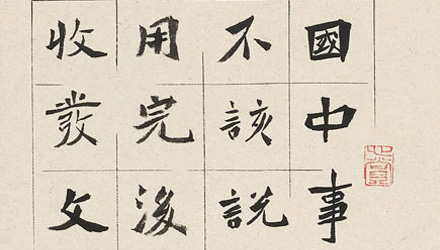 國中事
不該説
用完後
收發文